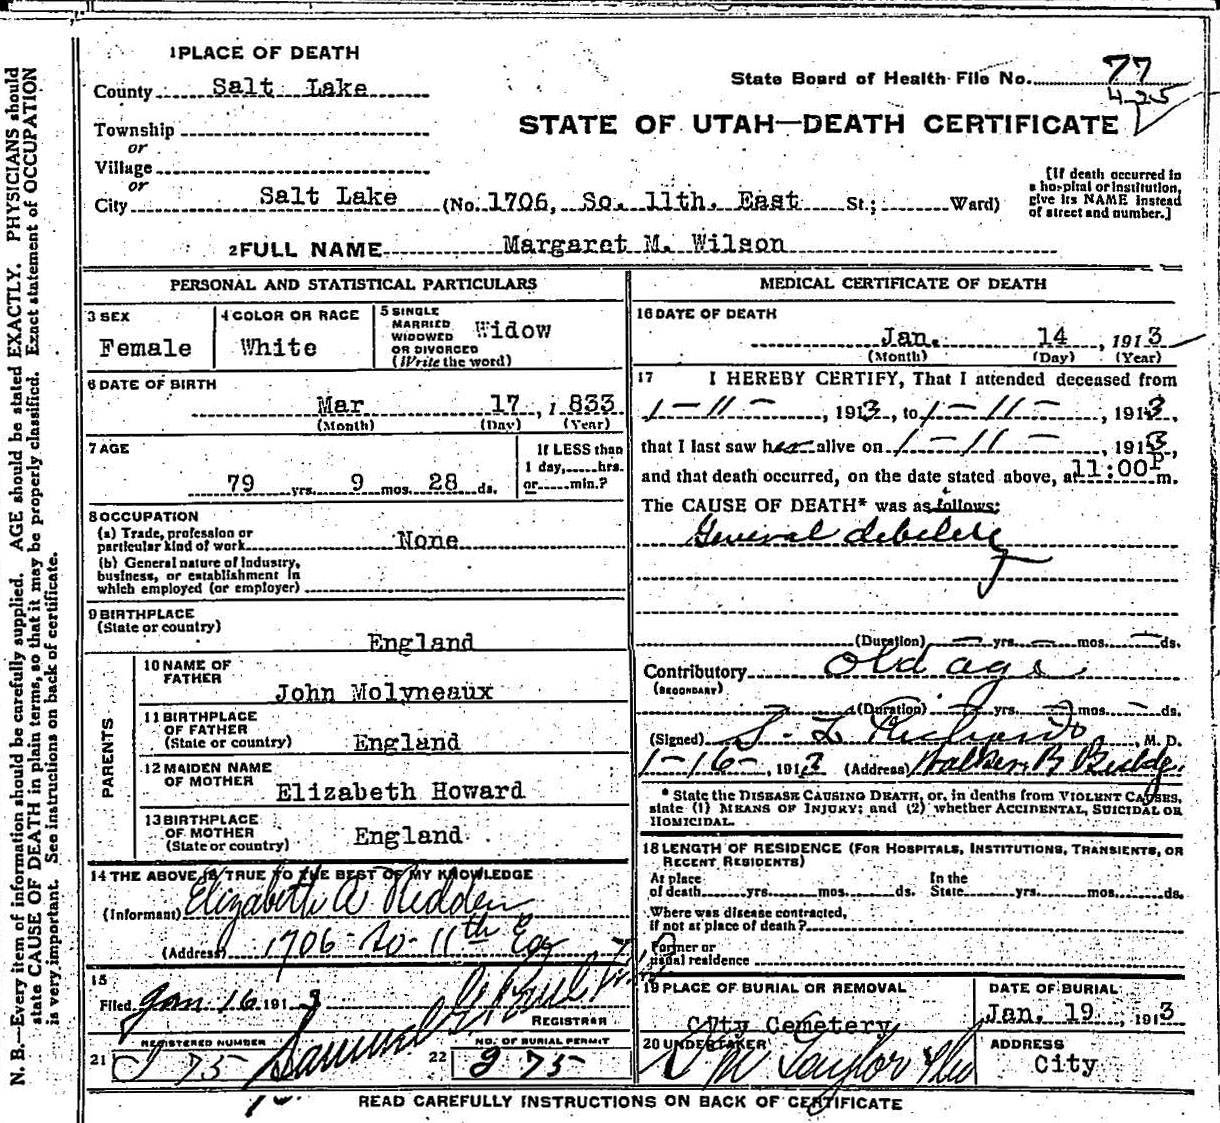 1 PLACE OF DEATH
County Salt Lake
State Board of Health File No. 77
425
Township
or
Village
or
STATE OF UTAH—DEATH CERTIFICATE
City Salt Lake (No. 1706, So. 11th. East St.; Ward)
[If death occurred in
a hospital or institution,
give its NAME instead
of street and number.]
2 FULL NAME Margaret M. Wilson
PERSONAL AND STATISTICAL PARTICULARS
3 SEX
Female
4 COLOR OR RACE
White
5 SINGLE
MARRIED
WIDOWED
OR DIVORCED
(Write the word)
Widow
6 DATE OF BIRTH
Mar 17, 1833
(Month) (Day) (Year)
7 AGE
79 yrs. 9 mos. 28 ds.
If LESS than
1 day,.....hrs.
or.....min.?
8 OCCUPATION
(a) Trade, profession or
particular kind of work None
(b) General nature of Industry,
business, or establishment in
which employed (or employer)
9 BIRTHPLACE
(State or country)
England
PARENTS
10 NAME OF
FATHER
John Molyneaux
11 BIRTHPLACE
OF FATHER
(State or country) England
12 MAIDEN NAME
OF MOTHER
Elizabeth Howard
13 BIRTHPLACE
OF MOTHER
(State or country) England
14 THE ABOVE IS TRUE TO THE BEST OF MY KNOWLEDGE
(Informant) Elizabeth A Hedden
(Address) 1706 So 11th
15
Filed Jan 16 1913
Samuel G
REGISTRAR
21 REGISTERED NUMBER
75
22 NO. OF BURIAL PERMIT
975
MEDICAL CERTIFICATE OF DEATH
16 DATE OF DEATH
Jan. 14, 1913
(Month) (Day) (Year)
17 I HEREBY CERTIFY, That I attended deceased from
1-11-, 1913, to 1-11-, 1913,
that I last saw her alive on 1-11-, 1913,
and that death occurred, on the date stated above, at 11:00 P m.
The CAUSE OF DEATH* was as follows:
General debility
(Duration) — yrs. — mos. — ds.
Contributory old age
(SECONDARY)
(Duration) — yrs. — mos. — ds.
(Signed) Richards, M. D.
1-16-, 1913 (Address) Walker B Bldg.
* State the DISEASE CAUSING DEATH, or, in deaths from VIOLENT CAUSES,
state (1) MEANS OF INJURY; and (2) whether ACCIDENTAL, SUICIDAL OR
HOMICIDAL.
18 LENGTH OF RESIDENCE (FOR HOSPITALS, INSTITUTIONS, TRANSIENTS, OR
RECENT RESIDENTS)
At place In the
of death.....yrs.....mos.....ds. State.....yrs.....mos.....ds.
Where was disease contracted,
if not at place of death?
Former or
usual residence
19 PLACE OF BURIAL OR REMOVAL
City Cemetery
DATE OF BURIAL
Jan. 19, 1913
20 UNDERTAKER
Taylor
ADDRESS
City
READ CAREFULLY INSTRUCTIONS ON BACK OF CERTIFICATE
N. B.—Every item of information should be carefully supplied. AGE should be stated EXACTLY. PHYSICIANS should
state CAUSE OF DEATH in plain terms, so that it may be properly classified. Exact statement of OCCUPATION
is very important. See instructions on back of certificate.